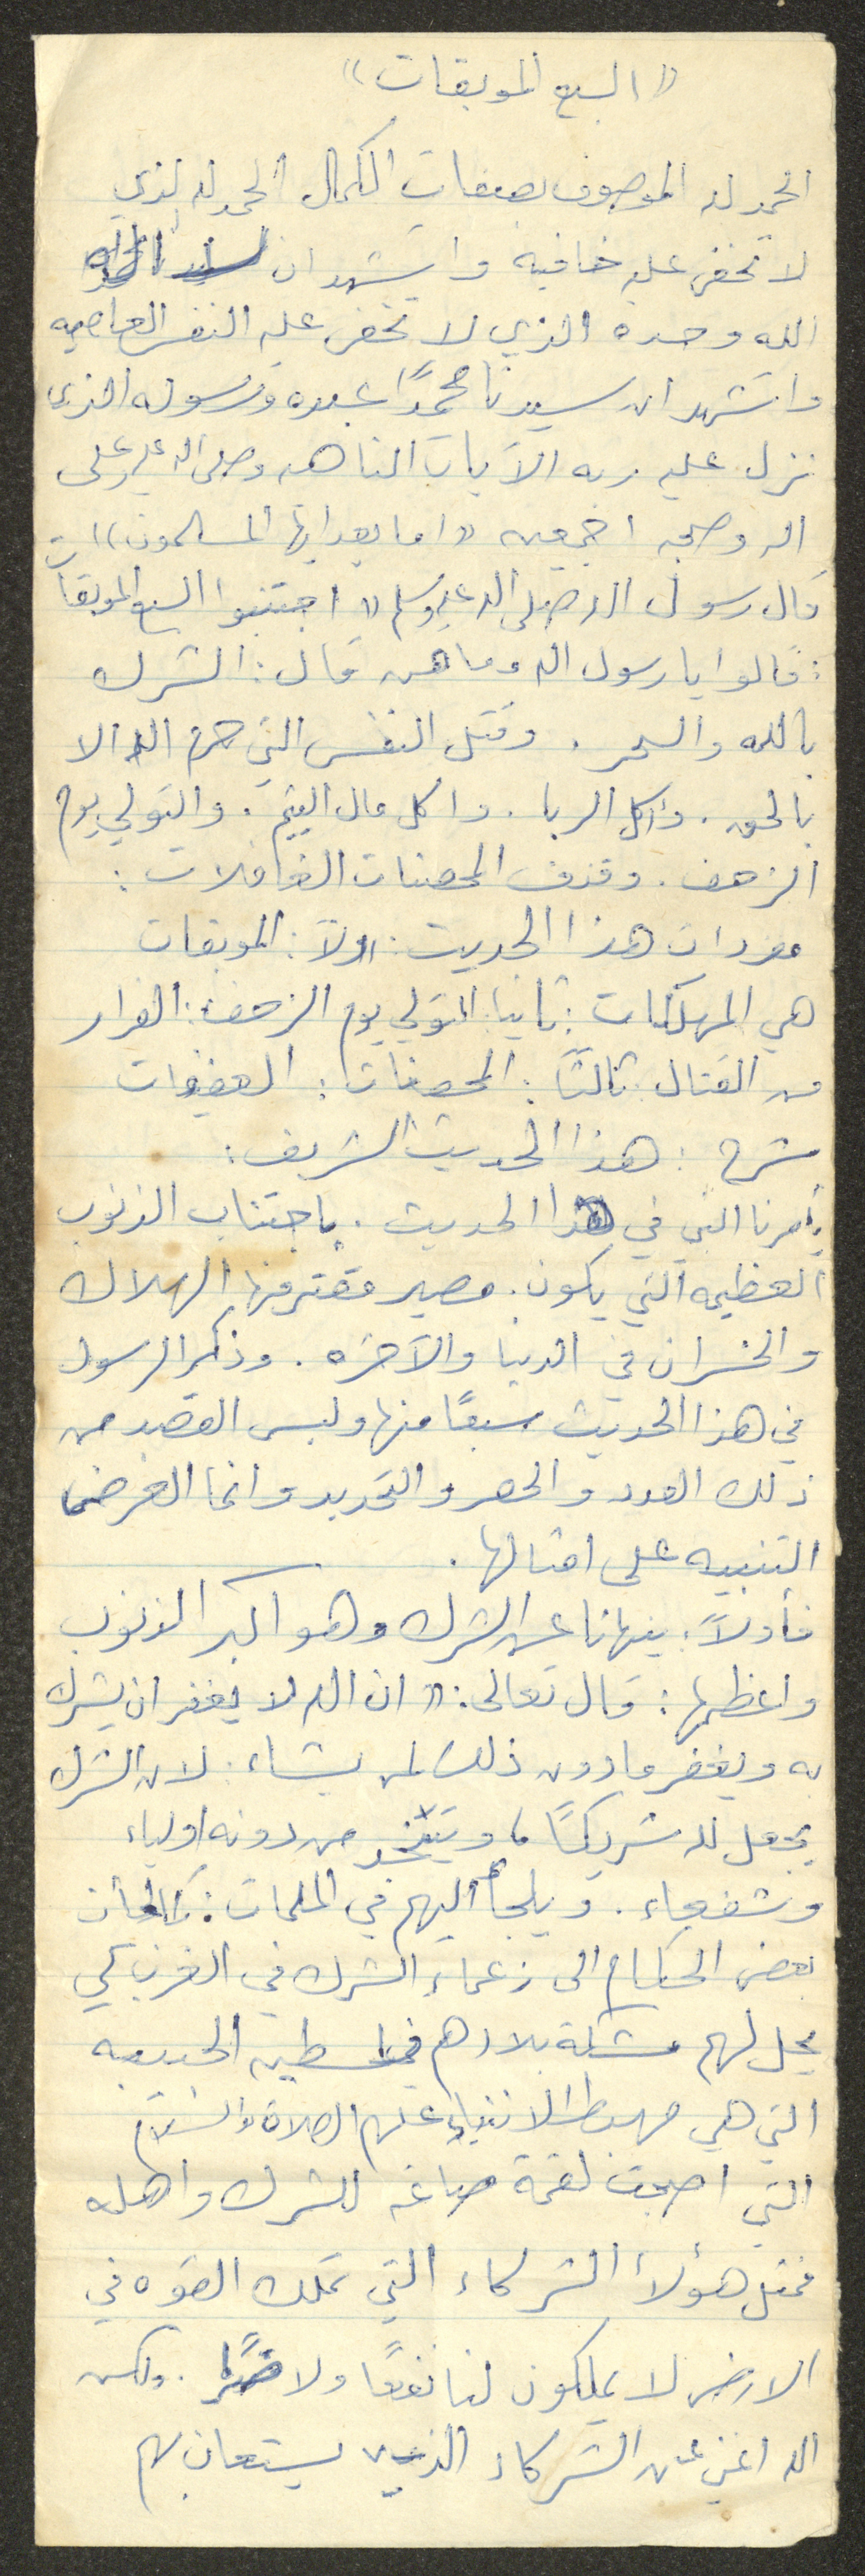 «السبع الموبقات»
الحمد لله الموصوف بصفات الكمال الحمد لله الذي
لا تخفى عليه خافيه واشهد ان
الله وحده الذي لا تخفى عليه النفس العاصيه
واشهد ان سيدنا محمدًا عبده ورسوله الذي
نزل عليه ربه الآيات الناهيه وصلى الله عليه وعلى
اله وصحبه اجمعين «اما بعد ايها المسلمون»
قال رسول الله صلى الله عليه وسلم «اجتنبوا السبع الموبقات
: قالوا يا رسول الله وما هن قال: الشرك
بالله والسحر. وقتل النفس التي حرم الله الا
بالحق. وأكل الربا. واكل مال اليتيم. والتولي يوم
الزحف. وقذف المحصنات الغافلات:
مفردات هذا الحديث: اولاً: الموبقات
هي المهلكات: ثانيا: التولي يوم الزحف: الفرار
من القتال: ثالثاً: المحصنات: العفيفات
شرح: هذا الحديث الشريف:
يأمرنا النبي في هذا الحديث. باجتناب الذنوب
العظيمه التي يكون. مصير مقترفها الهلاك
والخسران في الدنيا والآخره. وذكر الرسول
في هذا الحديث سبعًا منها وليس القصد من
ذلك العدد والحصر والتحديد وانما الغرض
التنبيه على امثالها.
فأولاً: ينهانا عن الشرك وهو اكبر الذنوب
واعظمها: قال تعالى: «ان الله لا يغفر ان يشرك
به ويغفر ما دون ذلك لمن يشاء: لان الشرك
يجعل لله شريكًا، ويتخذ من دونه اولياء
وشفعاء. ويلجأ اليهم في الملمات:
بعض الحكام الى زعماء الشرك في الغرب كي
يحل لهم مشكلة بلادهم فلسطين الحبيبه
التي هي مهبط الانبياء عليهم الصلاة والسلام
التي اصبحت لقمة صاغه للشرك واهله
فمثل هؤلأ الشركاء التي تملك القوه في
الارض لا يملكون لنا نفعًا ولا ضرًا. ولكن
الله اغنى عن الشركاء الذين يستعان بهم